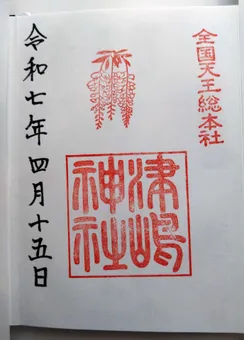 全国天王総本社
津嶋
神社
令和七年四月十五日